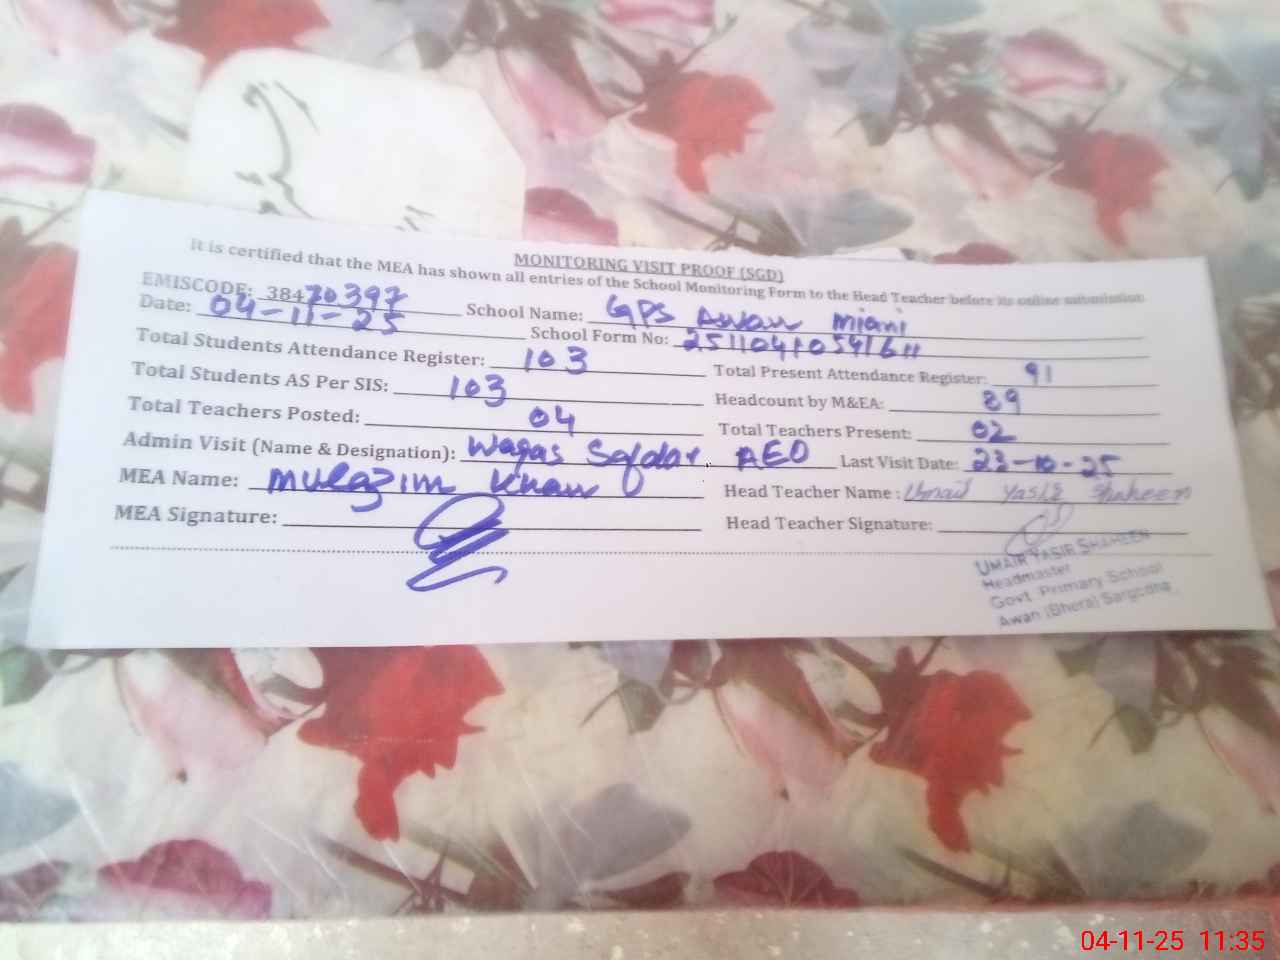 MONITORING VISIT PROOF (SGD)
It is certified that the MEA has shown all entries of the School Monitoring Form to the Head Teacher before its online submission
EMISCODE: 38470397 School Name: GPS Awan Miani
Date: 04-11-25 School Form No:
Total Students Attendance Register: 103 Total Present Attendance Register: 91
Total Students AS Per SIS: 103 Headcount by M&EA: 89
Total Teachers Posted: 04 Total Teachers Present: 02
Admin Visit (Name & Designation): Waqas Safdar. AEO Last Visit Date: 23-10-25
MEA Name: Mulazim Khan Head Teacher Name: Umair Yasir Shaheen
MEA Signature: Head Teacher Signature:
UMAIR YASIR SHAHEEN
Headmaster
Govt. Primary School
Awan (Bhera) Sargodha.
04-11-25 11:35